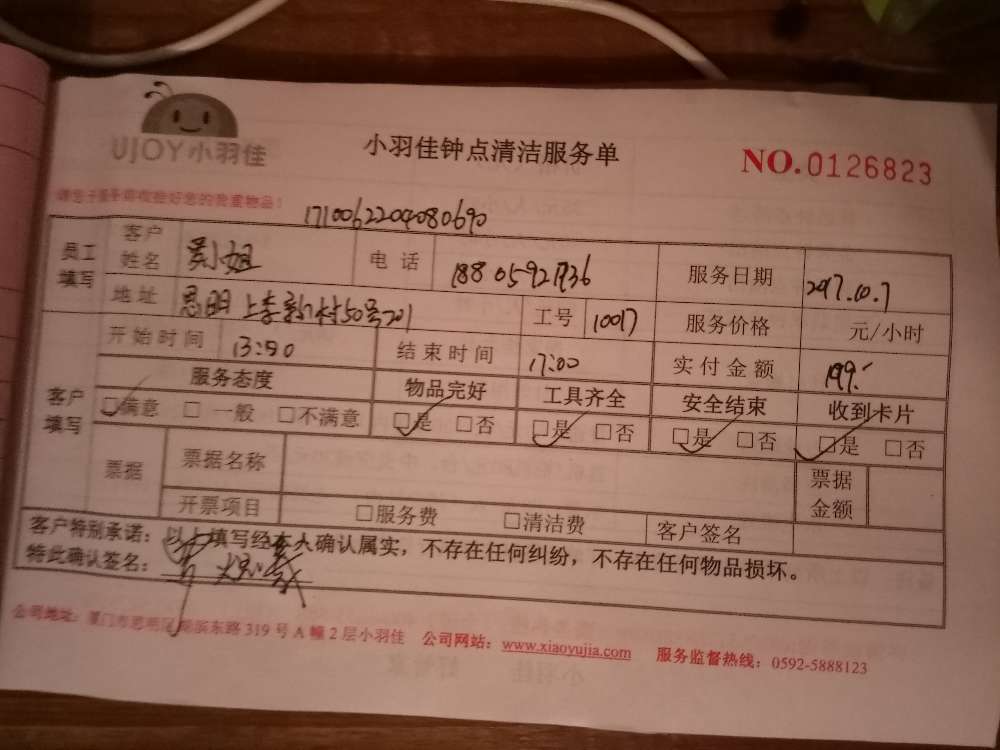 UJOY小羽佳
小羽佳钟点清洁服务单
NO.0126823
请您于服务前收拾好您的贵重物品!
1710062204080690
员工填写 客户姓名 电话 188 服务日期 2017.10.7
地址 思明 上李新村50号201 工号 10017 服务价格 元/小时
客户填写 开始时间 13:50 结束时间 17:00 实付金额 199.-
服务态度 物品完好 工具齐全 安全结束 收到卡片
☑满意 □一般 □不满意 ☑是 □否 ☑是 □否 ☑是 □否 ☑是 □否
票据 票据名称 票据金额
开票项目 □服务费 □清洁费 客户签名
客户特别承诺:以上填写经本人确认属实,不存在任何纠纷,不存在任何物品损坏。
特此确认签名:
公司地址:厦门市思明区湖滨东路319号A幢2层小羽佳 公司网站:www.xiaoyujia.com 服务监督热线:0592-5888123